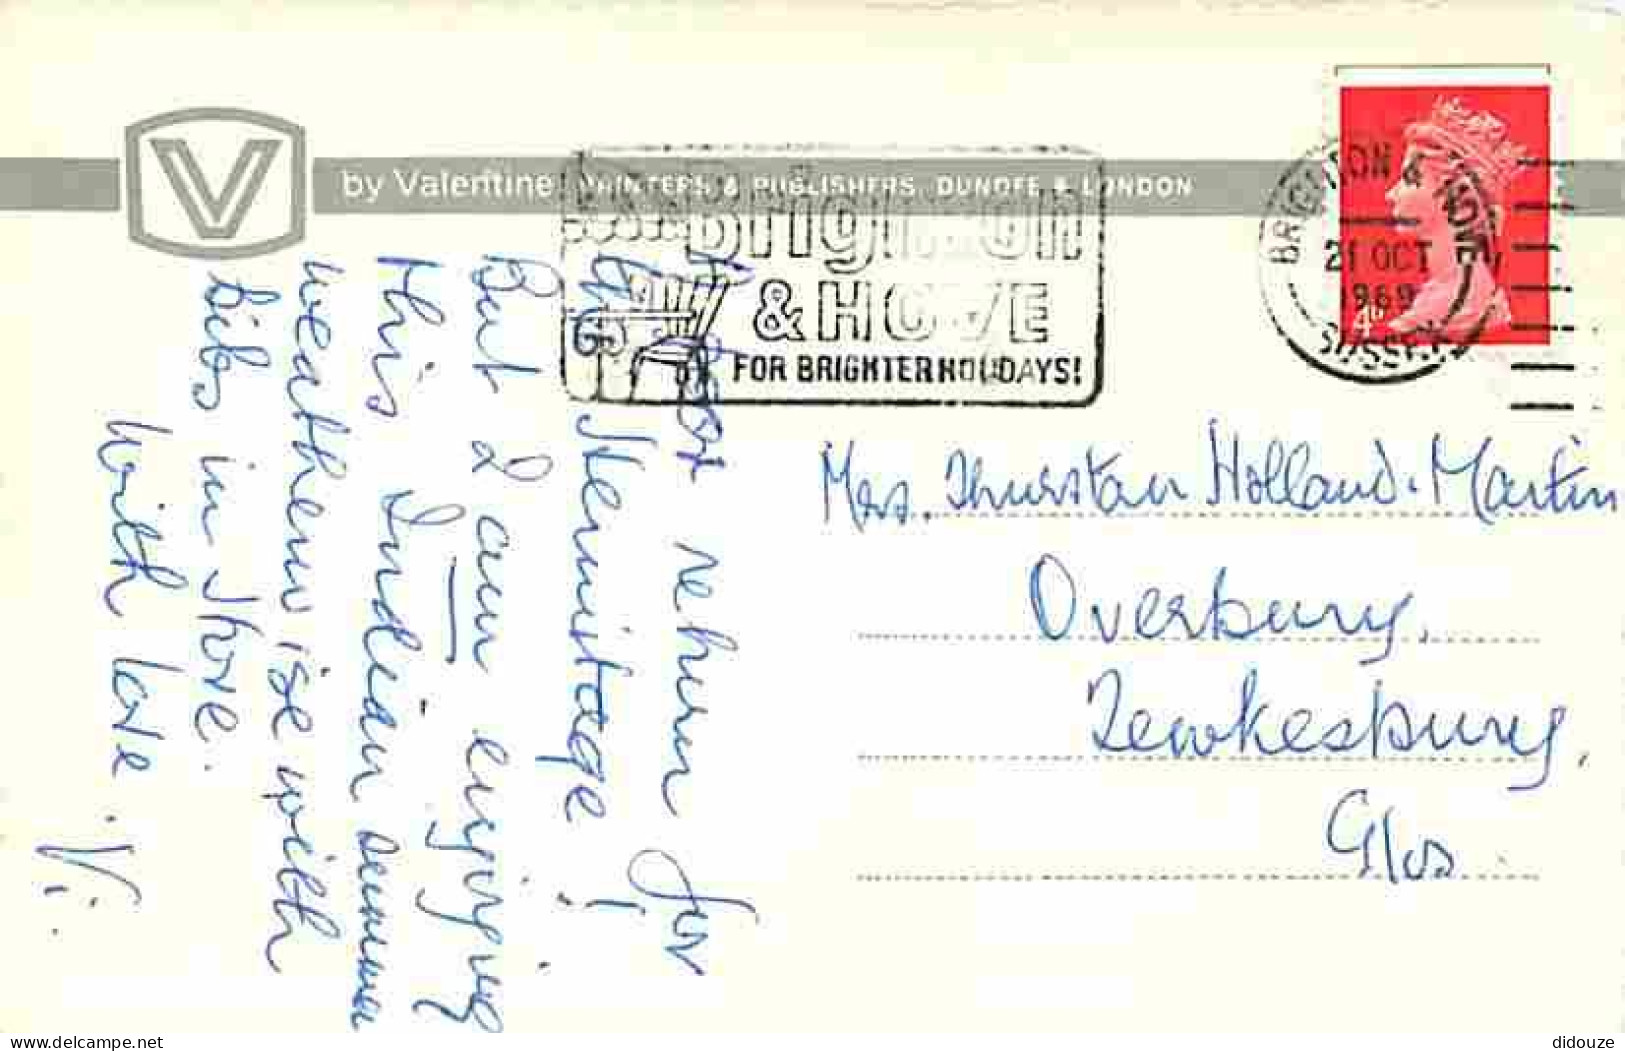 V
by Valentine PRINTERS & PUBLISHERS, DUNDEE & LONDON
Brighton
& HOVE
FOR BRIGHTER HOLIDAYS!
BRIGHTON & HOVE
21 OCT
1969
SUSSEX
4D
Mrs. Thurstan Holland-Martin
Overbury,
Tewkesbury,
Glos
return for
the Hermitage!
But I am enjoying
this Indian summer
weather wise with
bibs in store.
With love
Vi.
delcampe.net
didouze